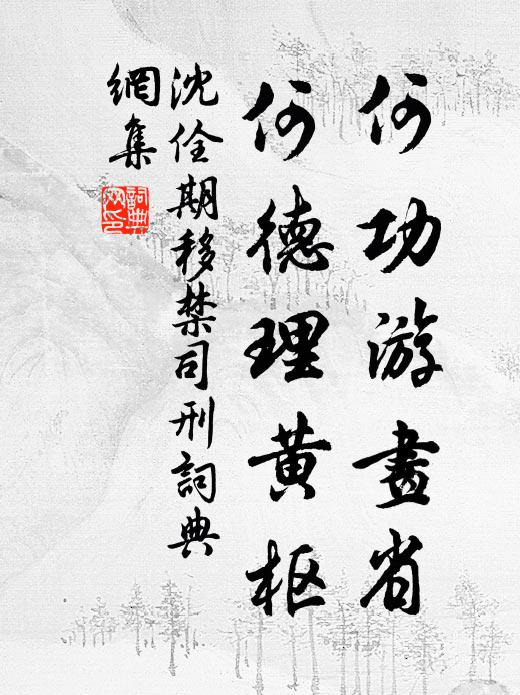 何功游畫省
何德理黃枢
沈佺期移禁司刑詞典
網集
詞典
网印